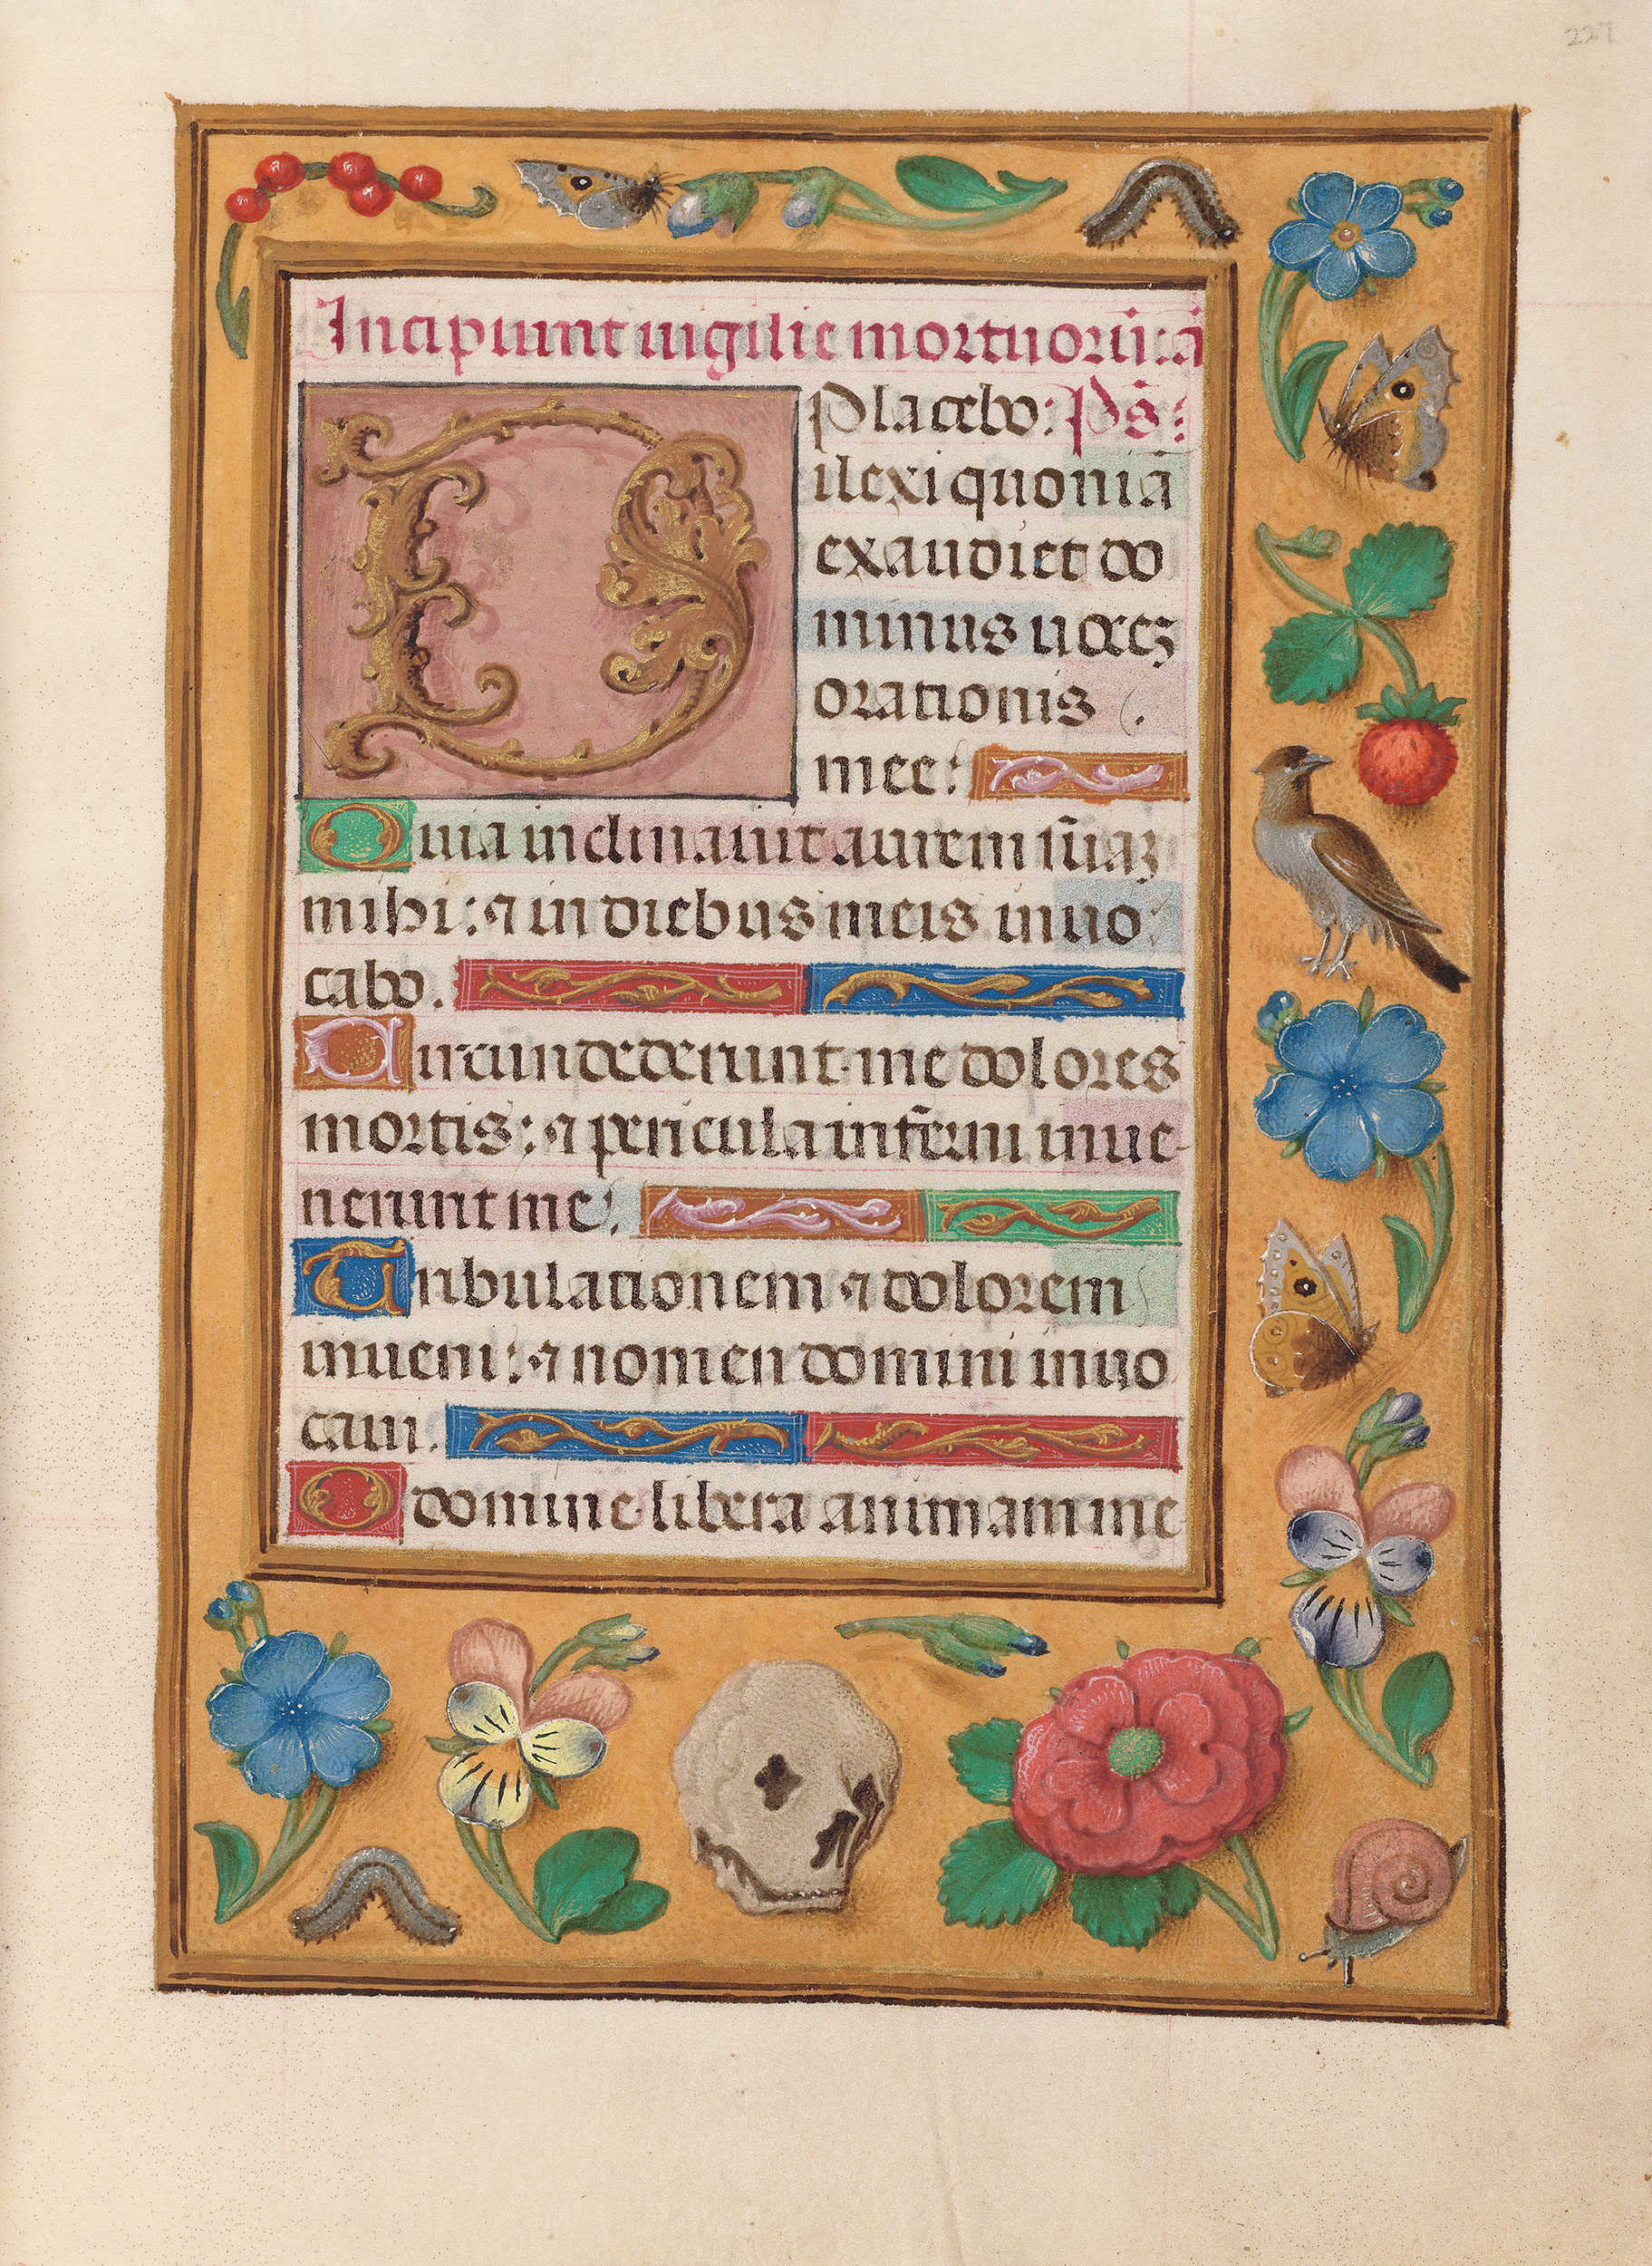 227
Incipiunt uigilie mortuorũ: ã
Placebo: Ps̃:
Dilexi quoniã
exaudiet do
minus uocẽ
orationis
mee:
Quia inclinauit aurem suaʒ
mihi: ⁊ in diebus meis inuo
cabo.
Circundederunt me dolores
mortis: ⁊ pericula inferni inue-
nerunt me:
Tribulationem ⁊ dolorem
inueni: ⁊ nomen domini inuo
caui.
O domine libera animam me